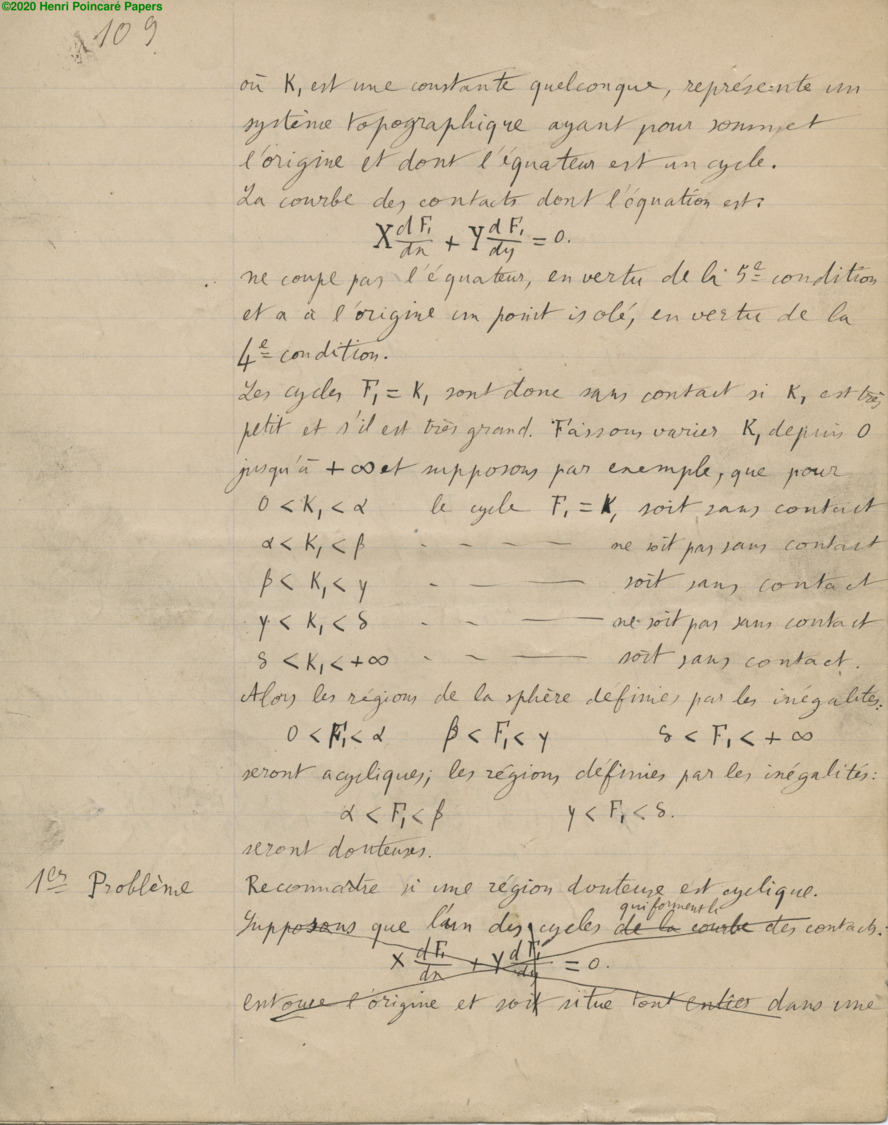 ©2020 Henri Poincaré Papers
109
où K₁ est une constante quelconque, représente un
système topographique ayant pour sommet
l'origine et dont l'équateur est un cycle.
La courbe des contacts dont l'équation est:
X dF₁/dx + Y dF₁/dy = 0.
ne coupe pas l'équateur, en vertu de la 5e condition
et a à l'origine un point isolé, en vertu de la
4e condition.
Les cycles F₁ = K₁ sont donc sans contact si K₁ est très
petit et s'il est très grand. Faisons varier K₁ depuis 0
jusqu'à +∞ et supposons par exemple, que pour
0 < K₁ < α le cycle F₁ = K₁ soit sans contact
α < K₁ < β - - - — ne soit pas sans contact
β < K₁ < γ - — — soit sans contact
γ < K₁ < δ - - — ne soit pas sans contact
δ < K₁ < +∞ - - — soit sans contact.
Alors les régions de la sphère définies par les inégalités:
0 < F₁ < α β < F₁ < γ δ < F₁ < +∞
seront acycliques; les régions définies par les inégalités:
α < F₁ < β γ < F₁ < δ.
seront douteuses.
1er Problème Reconnaître si une région douteuse est cyclique.
qui forment la
Supposons que l'un des cycles de la courbe des contacts.
X dF₁/dx + Y dF₁/dy = 0.
entoure l'origine et soit situé tout entier dans une